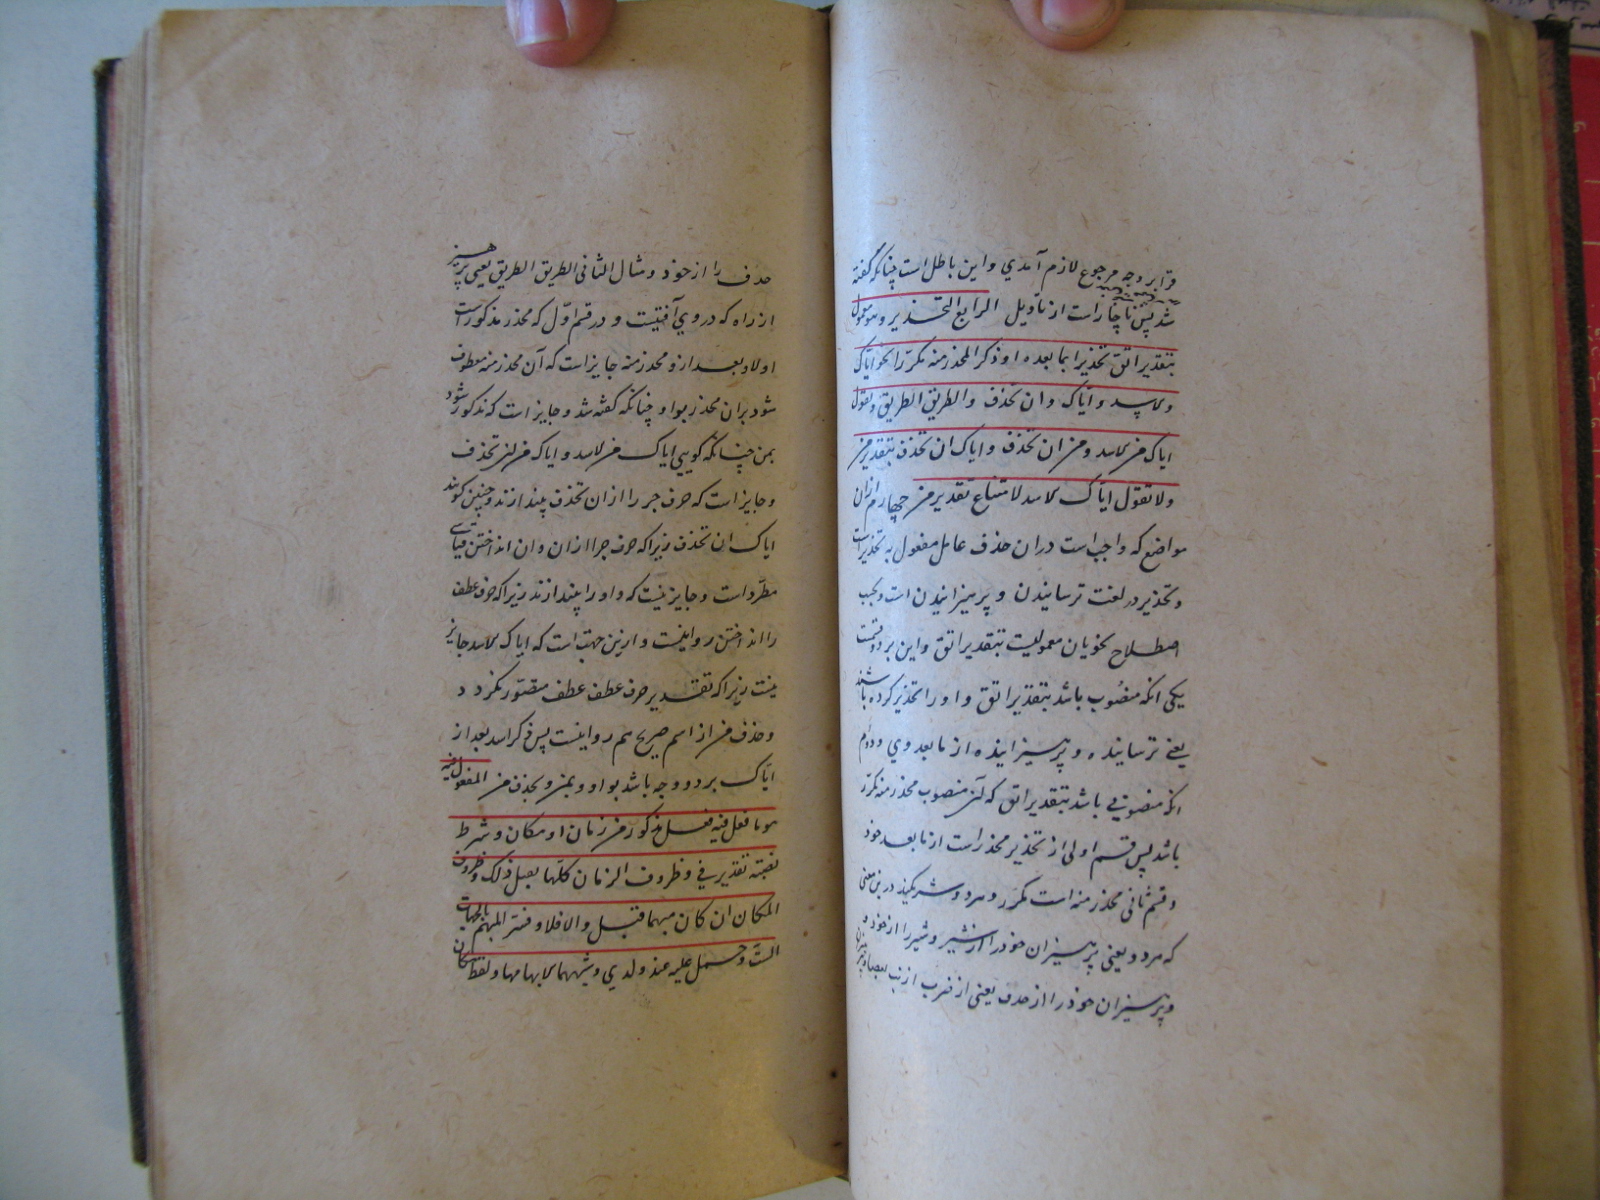 قرابر وجه مرجوع لازم آمدي واین باطل است چنانکه گفته
شد پس ناچار است از تاویل الرابع التحذیر وهو معمول
بتقدیر اتق تحذیرا مما بعده او ذکر المحذر منه مکررا نحو ایاک
والاسد وایاک وان تحذف والطریق الطریق وتقول
ایاک من الاسد ومن ان تحذف وایاک ان تحذف بتقدیر من
ولا تقول ایاک الاسد لامتناع تقدیر من چهارم ازان
مواضع که واجب است دران حذف عامل مفعول به تحذیر است
وتحذیر در لغت ترسانیدن و پرهیزانیدن است وبحسب
اصطلاح نحویان معمولیست بتقدیر اتق واین بر دو قسمت
یکی انکه منصوب باشد بتقدیر اتق واورا تحذیر کرده باشند
یعنی ترسانیده و پرهیزانیده از ما بعد وي و دوم
انکه منصوبی باشد بتقدیر اتق که آن منصوب محذر منه مکرر
باشد پس قسم اولی از تحذیر محذر است از ما بعد خود
وقسم ثانی محذر منه است مکرر و هر دو شریکند درین معنی
که هر دو یعنی پرهیزان خود را از شیر و شیر را از خود و
وپرهیزان خود را از حذف یعنی از ضرب ارنب بعصا
حذف را از خود ومثال الثانی الطریق الطریق یعنی پرهیز
از راه که در وي آفتیست و در قسم اوّل که محذر مذکور است
اولا وبعد ازو محذر منه جایز است که آن محذر منه معطوف
شود بران محذر بواو چنانکه گفته شد وجایز است که مذکور شود
بمن چنانکه گویی ایاک من الاسد وایاک من ان تحذف
وجایز است که حرف جر را از ان تحذف بیندازند وچنین گویند
ایاک ان تحذف زیرا که حرف جر را ازان وان انداختن قیاسی
مطّرد است وجایز نیست که واو را بیندازند زیرا که حرف عطف
را انداختن روا نیست وازین جهت است که ایاک الاسد جایز
نیست زیرا که تقدیر حرف عطف عطف متصوّر نگردد
وحذف من از اسم صریح هم روا نیست پس ذکر اسد بعد از
ایّاک بر دو وجه باشد بواو وبمن وبحذف من المفعول فیه
هو ما فعل فیه فعل مذکور من زمان او مکان وشرط
نصبه تقدیر في وظروف الزمان کلّها یقبل ذلک وظروف
المکان ان کان مبهما قبل والا فلا وفسّر المبهم بالجهات
الست وحمل علیه عند ولدي وشبههما لابهامهما ولفظ مکان